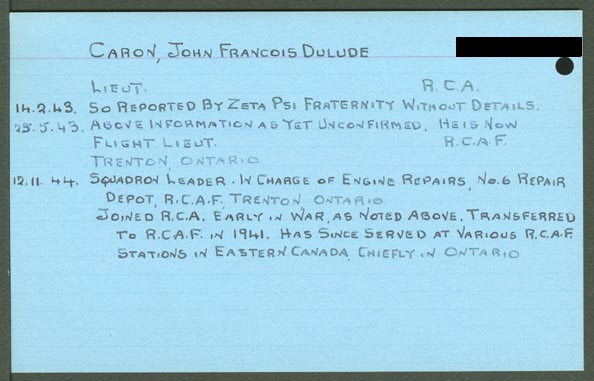 CARON, JOHN FRANCOIS DULUDE
LIEUT. R.C.A.
14.2.43. SO REPORTED BY ZETA PSI FRATERNITY WITHOUT DETAILS.
25.5.43. ABOVE INFORMATION AS YET UNCONFIRMED. HE IS NOW
FLIGHT LIEUT. R.C.A.F.
TRENTON, ONTARIO
12.11.44. SQUADRON LEADER. IN CHARGE OF ENGINE REPAIRS, NO.6 REPAIR
DEPOT, R.C.A.F., TRENTON, ONTARIO
JOINED R.C.A. EARLY IN WAR, AS NOTED ABOVE. TRANSFERRED
TO R.C.A.F. IN 1941. HAS SINCE SERVED AT VARIOUS R.C.A.F.
STATIONS IN EASTERN CANADA, CHIEFLY IN ONTARIO